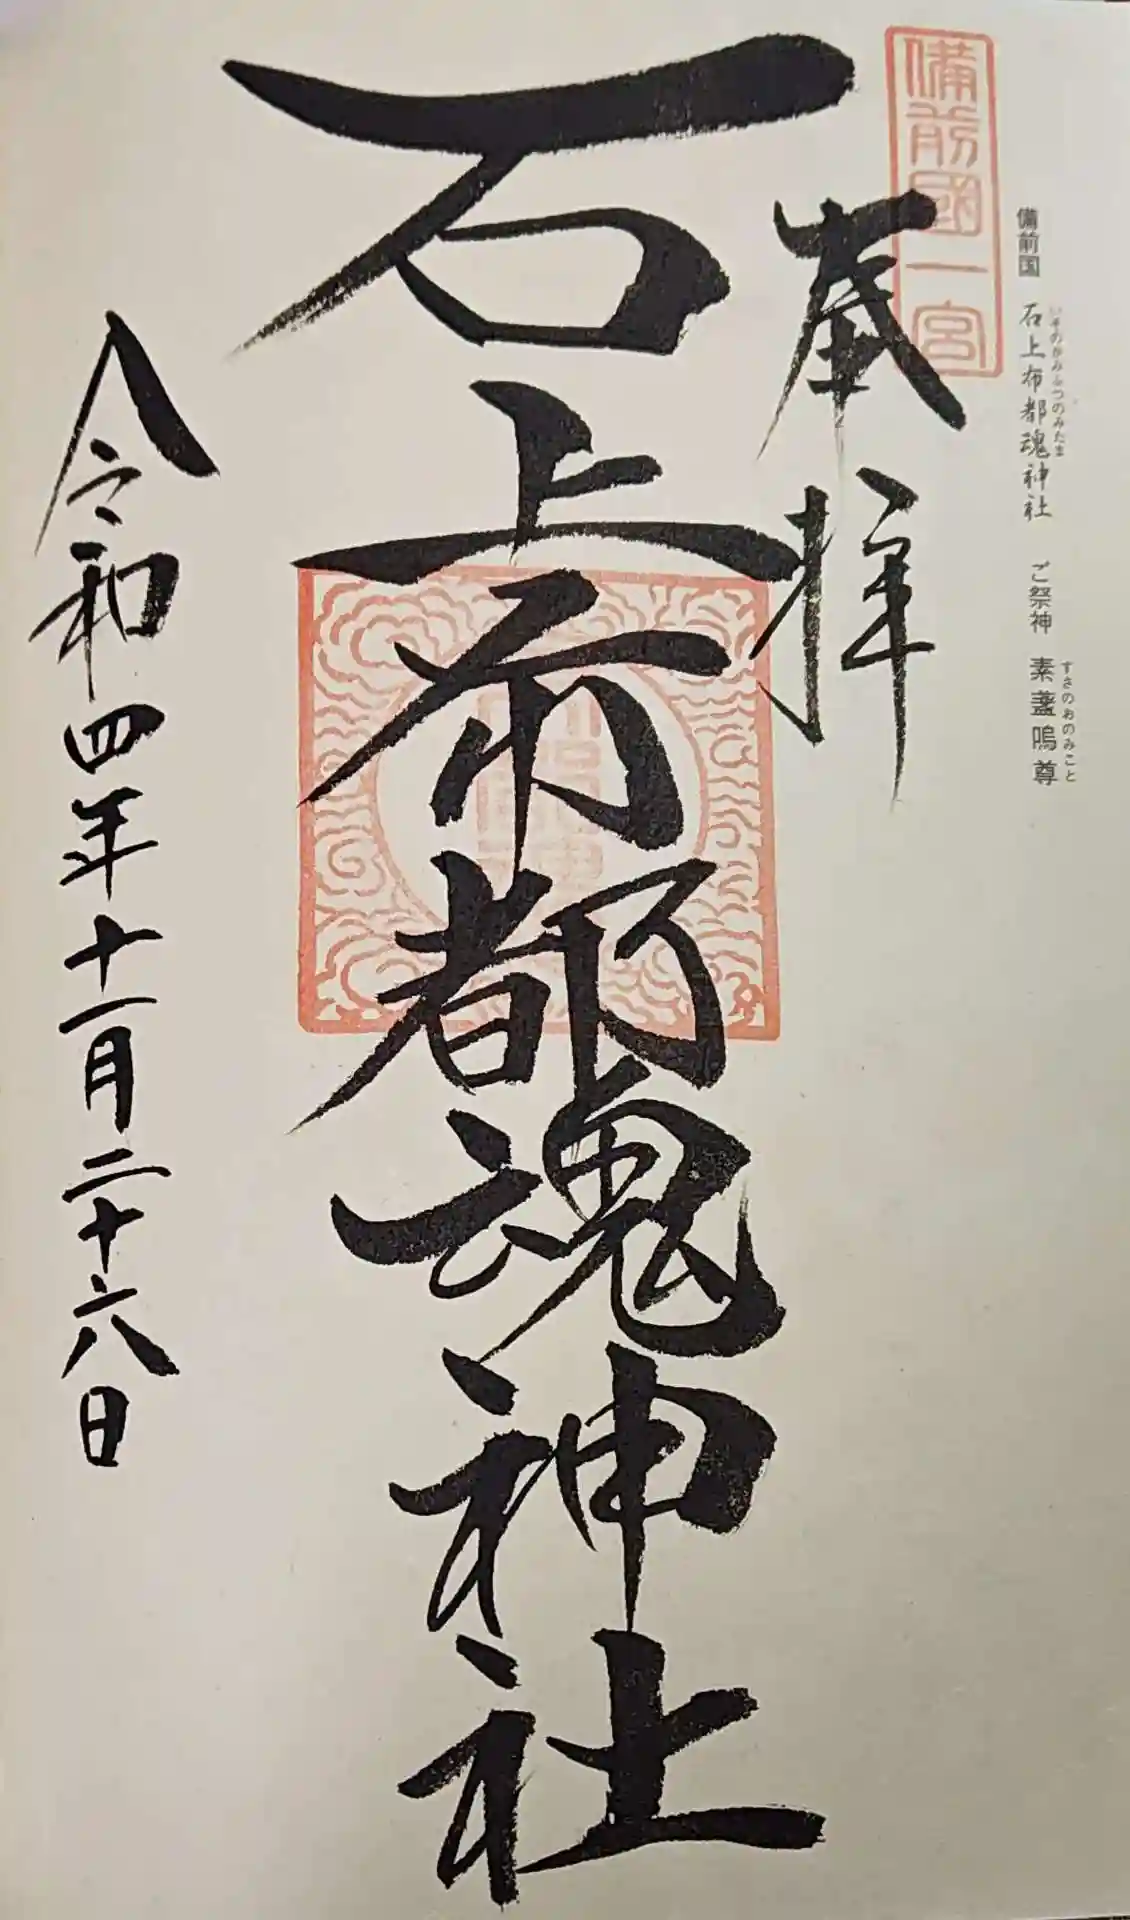 備前国 石上布都魂神社 ご祭神 素盞嗚尊
いそのかみふつのみたま
すさのおのみこと
備前國一宮
奉拝
石上布都魂神社
令和四年十一月二十六日